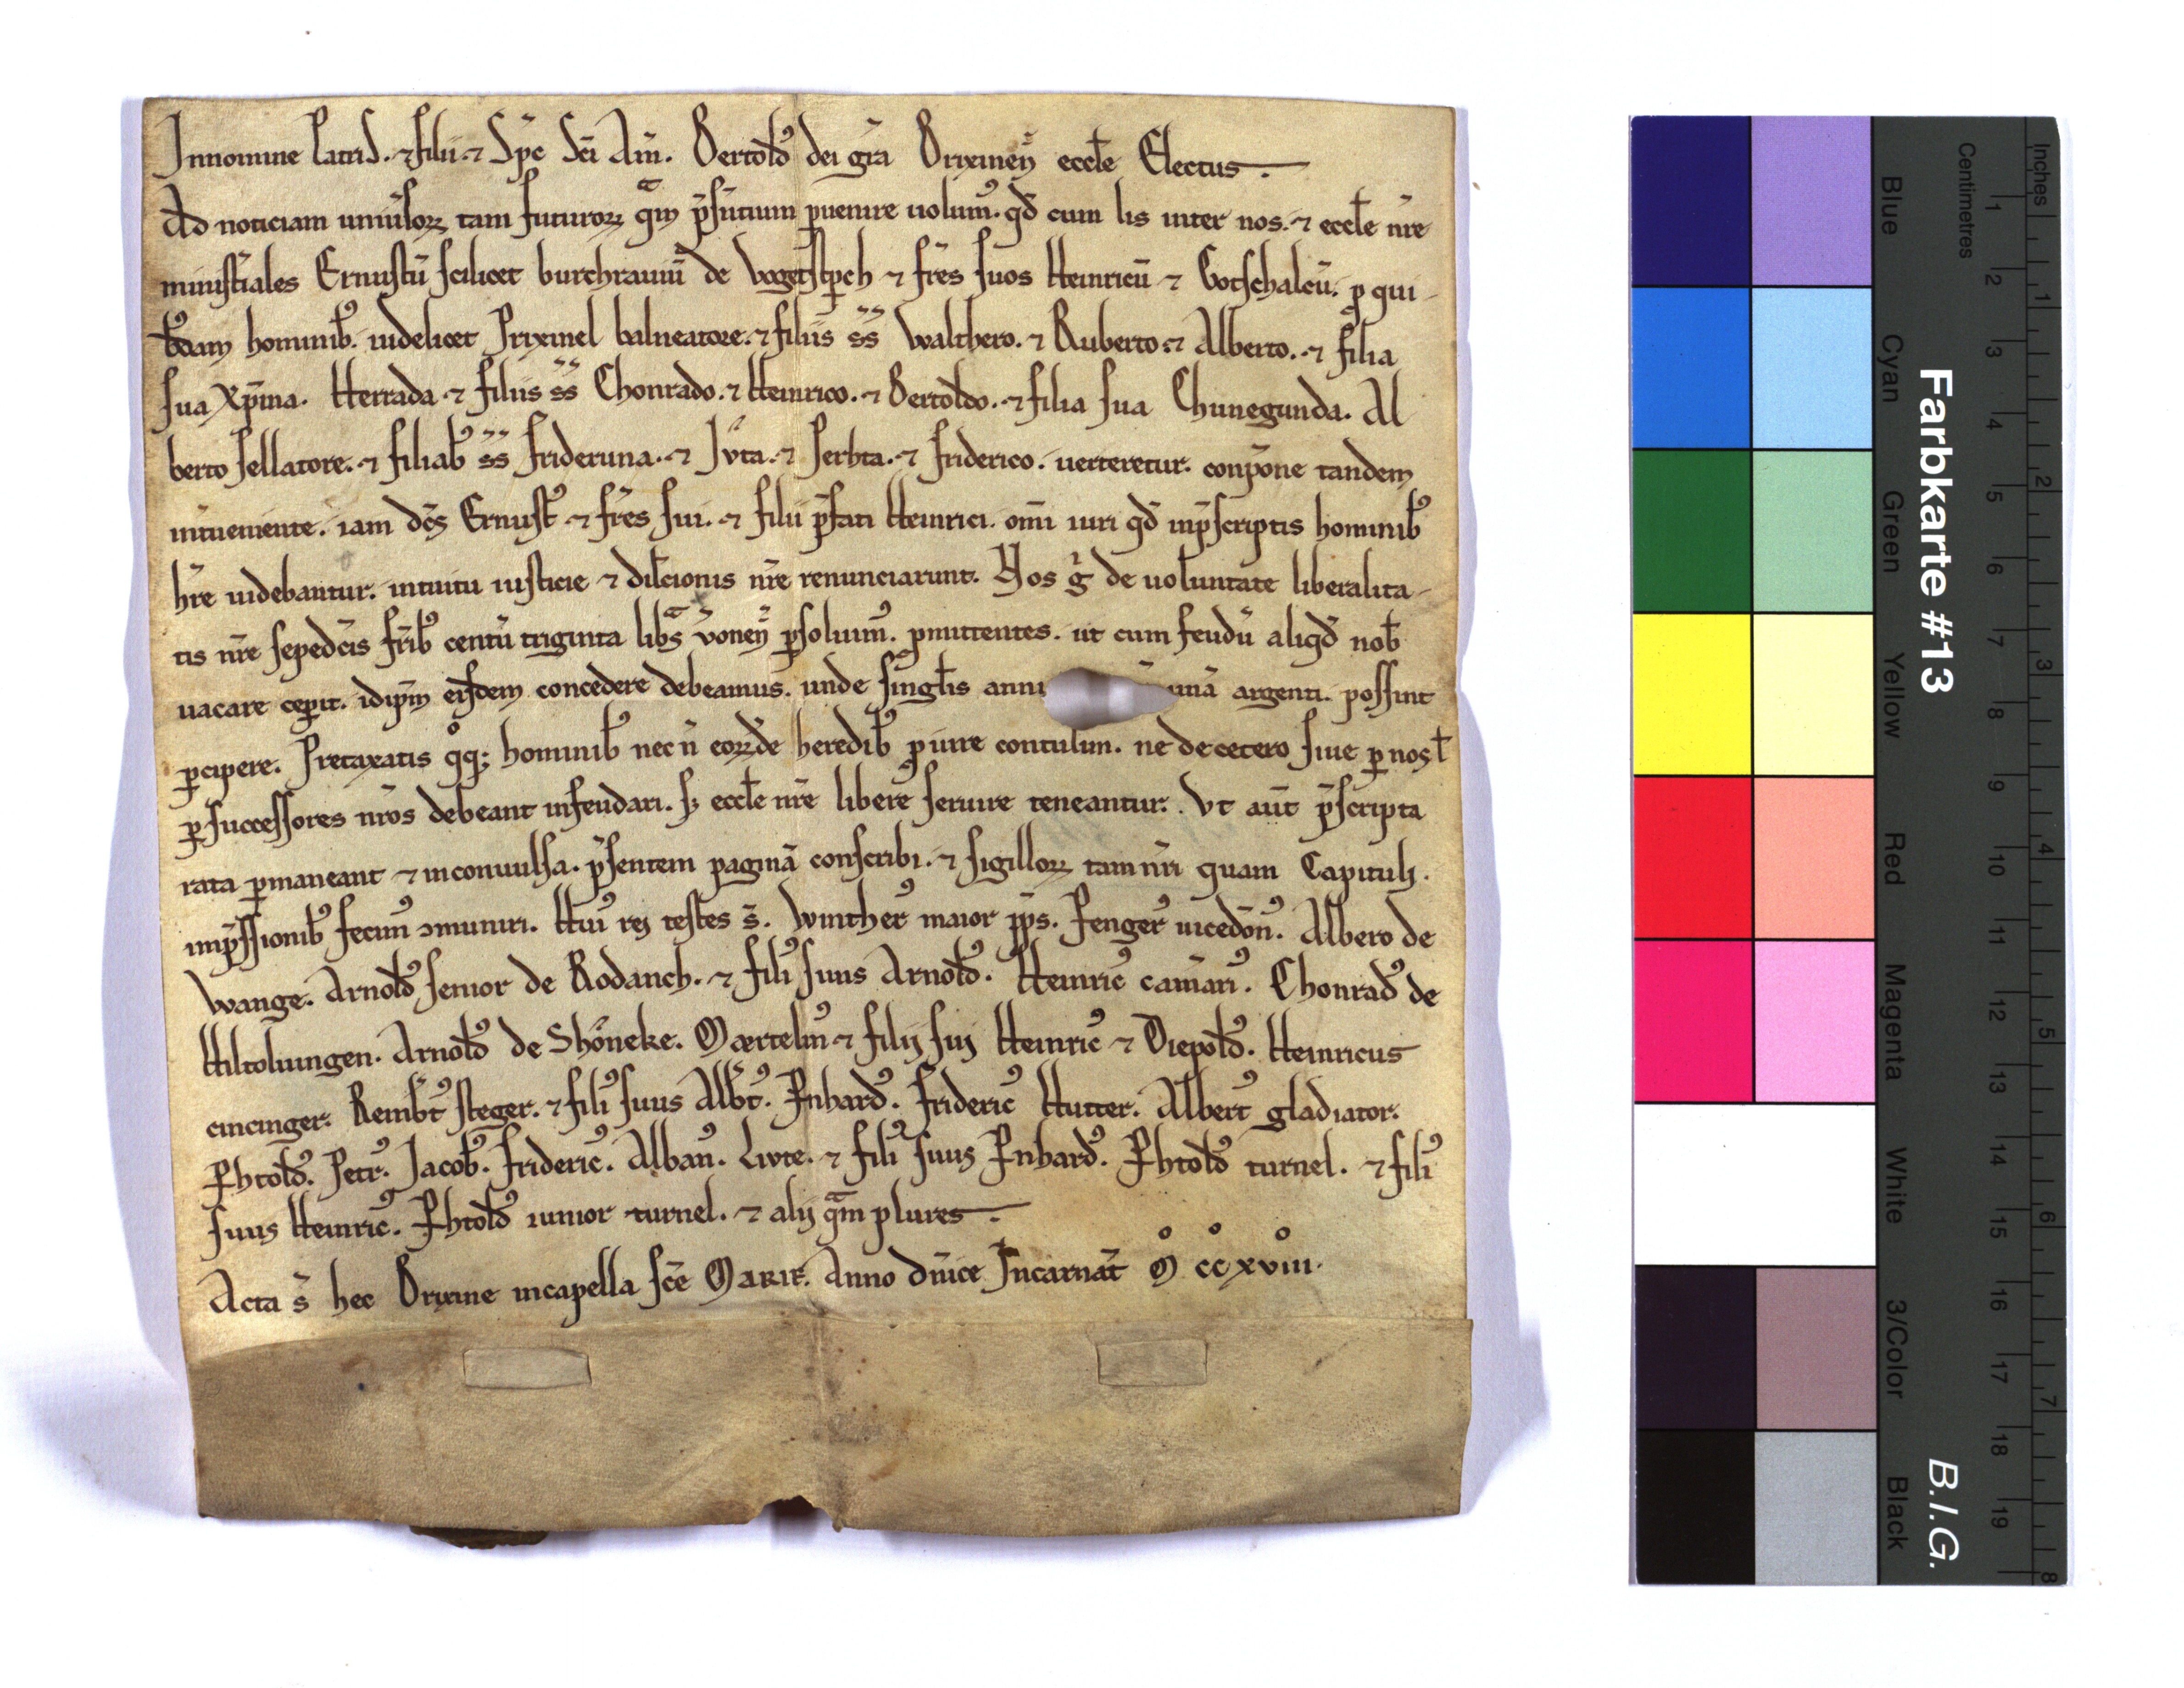 Innomine Patris. ⁊ filii ⁊ Sp̄c Sc̄i Am̄. Bertold᷒ dei gr̄a Brixineñ eccƚe Electus.
Ad noticiam uniūsoꝝ tam futuroꝝ qᵃm p̄sētium ꝑuenire uolum᷒. qd̄ cum lis inter nos. ⁊ eccƚe nr̄e
minist̄iales Ernustū scilicet burchrauiū de Vogetsꝑch ⁊ fr̄es suos Heinricū ⁊ Gotschalcū. ꝓ qui-
b᷒dam hominib᷒. uidelicet Prixinel balneatore. ⁊ filiis s̄s̄ Walthero. ⁊ Ruberto. ⁊ Alberto. ⁊ filia
sua Xp̄ina. Herrada ⁊ filiis s̄s̄ Chonrado. ⁊ Heinrico. ⁊ Bertoldo. ⁊ filia sua Chunegunda. Al
berto sellatore. ⁊ filiab᷒ s̄s̄ Frideruna. ⁊ Jvta. ⁊ Perhta. ⁊ Friderico. uerteretur. conpōne tandem
int̄ueniente. iam dc̄s Ernust᷒ ⁊ fr̄es sui. ⁊ filii p̄fati Heinrici. om̄i iuri qd̄ inp̄scriptis hominib᷒
hr̄e uidebantur. intuitu iusticie ⁊ dilc̄ionis nr̄e renunciarunt. Nos g̊ de uoluntate liberalita-
tis nr̄e sepedc̄is fr̄ib᷒ centū triginta libᵃs v̄oneñ ꝑsoluim᷒. ꝓmittentes. ut cum feudū aliqd̄ nob̄
uacare ceꝑit. idip̄m eisdem concedere debeamus. unde singƚis anni unā argenti. possint
ꝑcipere. Pretaxatis qͦq; hominib᷒ nec n̄ eoꝝde heredib᷒ ꝓ iure contulim. ne decetero siue ꝑ nos ƚ
ꝑ successores nr̄os debeant infeudari. sꝫ eccƚe nr̄e libere seruire teneantur. Vt aūt p̄scripta
rata ꝑmaneant ⁊ inconuulsa. p̄sentem paginā conscribi. ⁊ sigilloꝝ tam nr̄i quam Capituli.
inp̄ssionib᷒ fecim᷒ ↄmuniri. Hui᷒ rei testes s̄. Winther᷒ maior pp̄s. Fenger᷒ uicedōn᷒. Albero de
Wange. Arnold᷒ senior de Rodanch. ⁊ fili᷒ suus Arnold᷒. Heinric᷒ cam̄ari᷒. Chonrad᷒ de
Hiltoluingen. Arnold᷒ de Shöneke. Mærtelin᷒ ⁊ filij sui Heinric᷒ ⁊ Diepold᷒. Heinricus
cincinger. Reinb̄t᷒ steger. ⁊ fili᷒ suus Alb̄t᷒. Ęnhard᷒. Frideric᷒ Hutter. Albert᷒ gladiator.
Ꝑhtold᷒. Petr᷒. Jacob᷒. Frideric᷒. Alban᷒. Livte. ⁊ fili᷒ suus Ęnhard᷒. Ꝑhtold᷒ turnel. ⁊ fili᷒
suus Heinric᷒. Ꝑhtold᷒ iunior turnel. ⁊ alij qᵃm plures.
Acta s̄ hec Brixine incapella sc̄e Marie. Anno dn̄ice Incarnat̄ Mͦ ccͦ xviiiͦ.
Farbkarte #13
B.I.G.
Blue Cyan Green Yellow Red Magenta White 3/Color Black
Centimetres
1 2 3 4 5 6 7 8 9 10 11 12 13 14 15 16 17 18 19
Inches
1 2 3 4 5 6 7 8